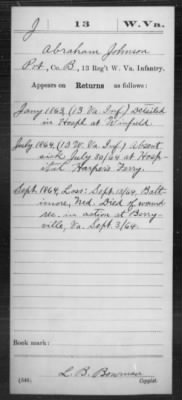 J 13 W. Va.
Abraham Johnson
Pvt, Co. B, 13 Reg't W. Va. Infantry.
Appears on Returns as follows:
Jany 1863, (13 Va. Inf.) Detailed
in Hospl at Winfield.
July 1864, (13 W. Va. Inf.) Absent
sick July 20/64 at Hosp-
ital Harpers Ferry.
Sept. 1864, Loss: Sept. 13/64, Balt
imore, Md. Died of wound
rec. in action at Berry-
ville, Va. Sept. 3/64.
Book mark:
(546) L. B. Bowman
Copyist.